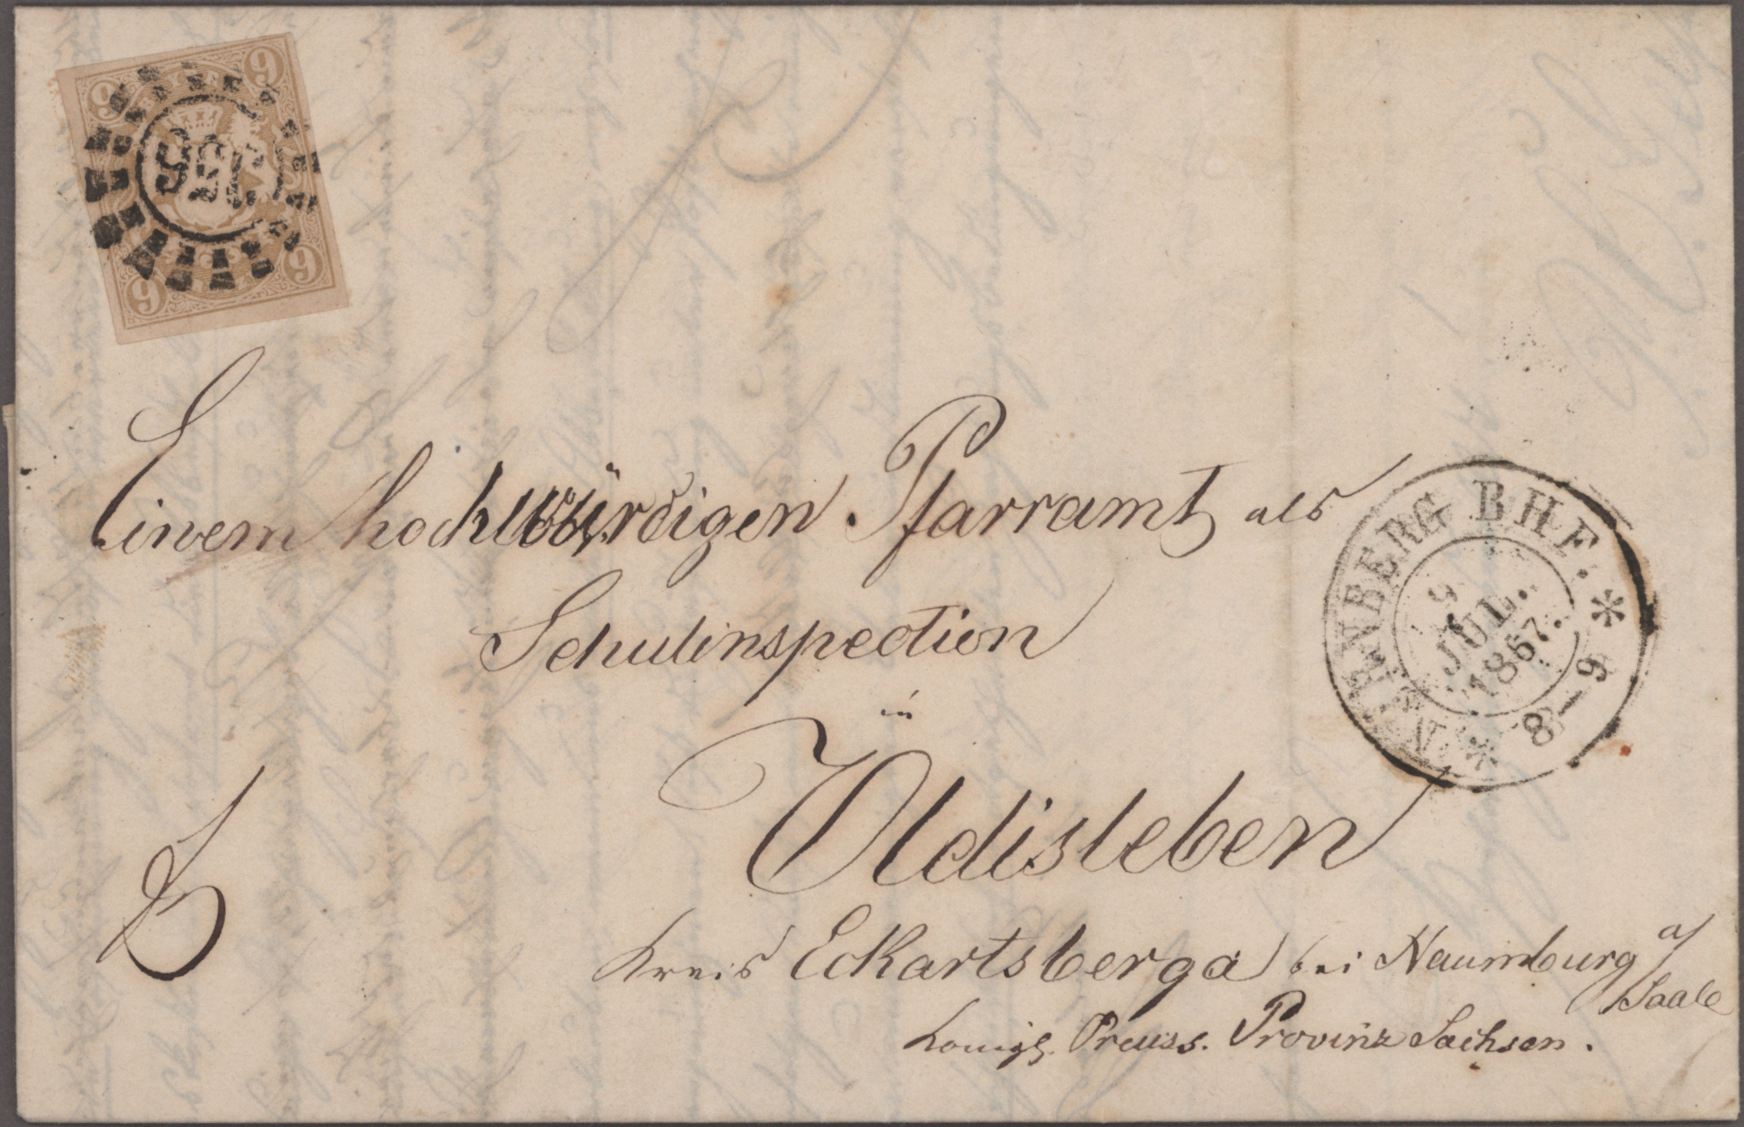 9 9
356
9 9
Einem hochwürdigen Pfarramt als
Schulinspection
in
Oldisleben
Kreis Eckartsberga bei Naumburg a/
Saale
Königl. Preuss. Provinz Sachsen.
NÜRNBERG BHF.
9
JUL.
1867.
8-9